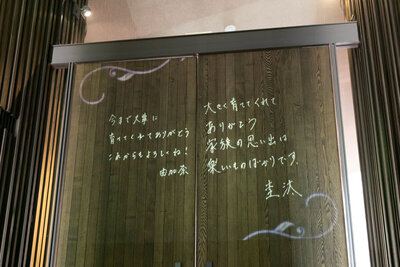 今まで大事に
育ててくれてありがとう
これからもよろしくね!
由加奈
大きく育ててくれて
ありがとう
家族の思い出は
楽しいものばかりです。
圭汰